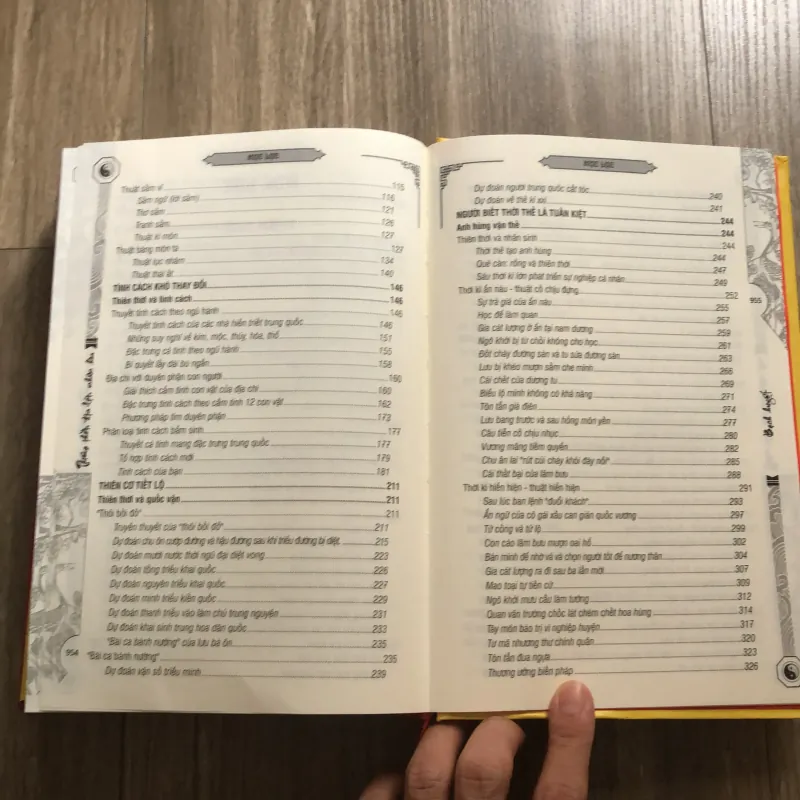 MỤC LỤC
Thuật sấm vĩ 115
Sấm ngữ (lời sấm) 116
Thơ sấm 121
Tranh sấm 126
Thuật kì môn 127
Thuật bàng môn tả 127
Thuật lục nhâm 134
Thuật thái ất 140
TÍNH CÁCH KHÓ THAY ĐỔI 146
Thiên thời và tính cách 146
Thuyết tính cách theo ngũ hành 146
Thuyết tính cách của các nhà hiền triết trung quốc 146
Những suy nghĩ về kim, mộc, thủy, hỏa, thổ 151
Đặc trưng cá tính theo ngũ hành 155
Bí quyết lấy dài bù ngắn 158
Địa chi với duyên phận con người 160
Giải thích cầm tinh con vật của địa chi 160
Đặc trưng tính cách theo cầm tinh 12 con vật 162
Phương pháp tìm duyên phận 173
Phân loại tính cách bẩm sinh 177
Thuyết cá tính mang đặc trưng trung quốc 177
Tổ hợp tính cách mới 179
Tính cách của bạn 181
THIÊN CƠ TIẾT LỘ 211
Thiên thời và quốc vận 211
"Thôi bối đồ" 211
Truyền thuyết của "thôi bối đồ" 211
Dự đoán chu ôn cướp đường và hậu đường sau khi triều đường bị diệt 215
Dự đoán mười nước thời ngũ đại diệt vong 223
Dự đoán tống triều khai quốc 226
Dự đoán nguyên triều khai quốc 227
Dự đoán minh triều kiến quốc 229
Dự đoán thanh triều vào làm chủ trung nguyên 231
Dự đoán khai sinh trung hoa dân quốc 233
"Bài ca bánh nướng" của lưu bá ôn 235
"Bài ca bánh nướng" 235
Dự đoán vận số triều minh 239
954
MỤC LỤC
Dự đoán người trung quốc cắt tóc 240
Dự đoán về thế kỉ xxi 241
NGƯỜI BIẾT THỜI THẾ LÀ TUẤN KIỆT 244
Anh hùng vận thế 244
Thiên thời và nhân sinh 244
Thời thế tạo anh hùng 244
Quẻ càn: rồng và thiên thời 247
Sáu thời kì lớn phát triển sự nghiệp cá nhân 249
Thời kì ẩn náu - thuật cố chịu đựng 252
Sự trả giá của ẩn náu 255
Học để làm quan 257
Gia cát lượng ở ẩn tại nam dương 259
Ngô khởi bị từ chối không cho học 261
Đốt cháy đường sàn và tu sửa đường sàn 263
Lưu bị khéo mượn sấm che mình 266
Cái chết của dương tu 269
Biểu lộ mình không có khả năng 271
Tôn tẫn giả điên 274
Lưu bang trước và sau hồng môn yến 277
Câu tiễn cố chịu nhục 280
Vương mãng tiếm quyền 282
Chu ân lai "rút củi cháy khỏi đáy nồi" 285
Cái thất bại của lâm bưu 288
Thời kì hiển hiện - thuật hiển hiện 291
Sau lúc ban lệnh "đuổi khách" 293
Ẩn ngữ của cô gái xấu can gián quốc vương 297
Tử cống và tử lộ 299
Con cáo làm bưu mượn oai hổ 302
Bàn minh để nhờ vả và chọn người tốt để nương thân 304
Gia cát lượng ra đi sau ba lần mời 307
Mao toại tự tiến cử 309
Ngô khởi mưu cầu làm tướng 312
Quan vân trường chốc lát chém chết hoa hùng 314
Tây môn báo trị vì nghiệp huyện 317
Tư mã nhương thư chỉnh quân 320
Tôn tẫn đua ngựa 323
Thương ưởng biến pháp 326
955
Bạch huyết